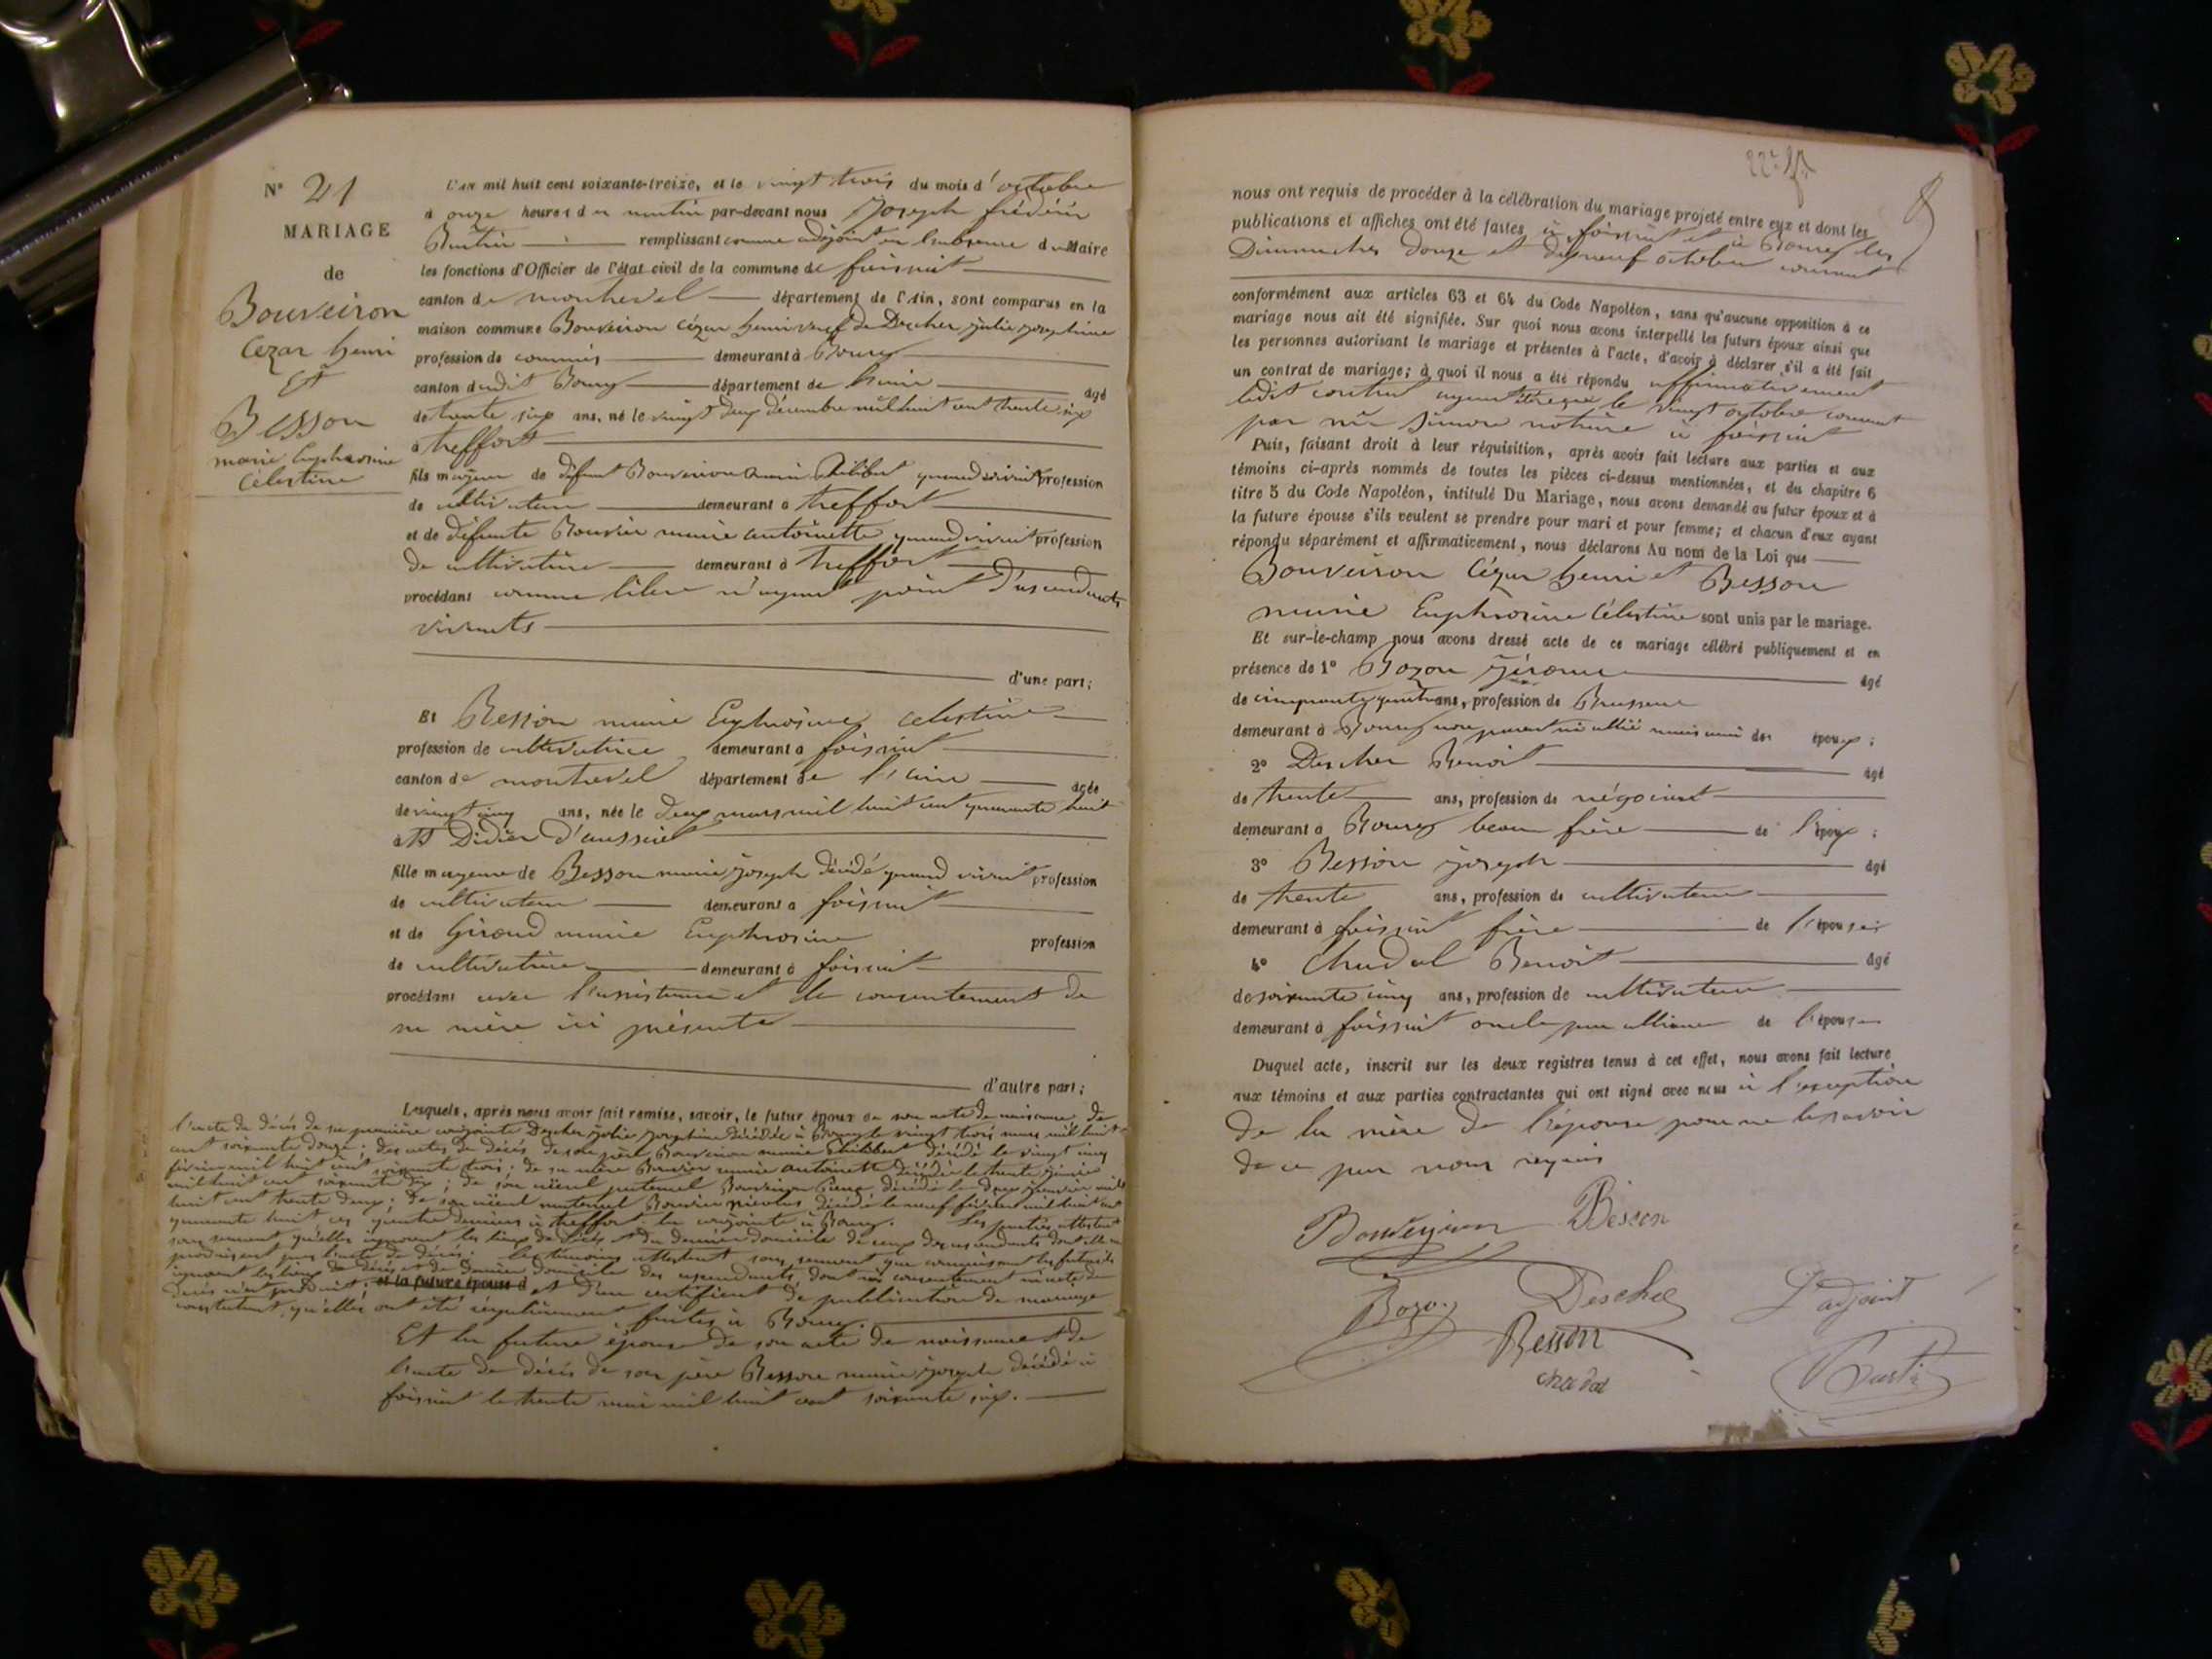 N° 21
MARIAGE
de
Bouveiron
Cézar henri
Et
Besson
marie Euphrosine
Célestine
L'an mil huit cent soixante-treize, et le vingt trois du mois d'octobre
à onze heures du matin par-devant nous Joseph frédéric
remplissant comme adjoint en l'absence du Maire
les fonctions d'Officier de l'état civil de la commune de foissiat
canton de montrevel département de l'Ain, sont comparus en la
maison commune Bouveiron Cézar henri veuf de Descher julie josephine
profession de commis demeurant à Bourg
canton dudit Bourg département de l'ain âgé
de trente six ans, né le vingt deux décembre mil huit cent trente six
à treffort
fils majeur de défunt Bouveiron marie Philibert quand vivait profession
de cultivateur demeurant à treffort
et de défunte Bouvier marie antoinette quand vivait profession
de cultivatrice demeurant à treffort
procédant comme libre n'ayant point d'ascendants
vivants
d'une part;
Et Besson marie Euphrosine Célestine
profession de cultivatrice demeurant à foissiat
canton de montrevel département de l'ain âgée
de vingt cinq ans, née le deux mars mil huit cent quarante huit
à St Didier d'aussiat
fille majeure de Besson marie joseph décédé quand vivait profession
de cultivateur demeurant à foissiat
et de Giroud marie Euphrosine profession
de cultivatrice demeurant à foissiat
procédant avec l'assistance et le consentement de
sa mère ici présente
d'autre part;
Lesquels, après nous avoir fait remise, savoir, le futur époux de son acte de naissance, de
l'acte de décès de sa première conjointe Descher julie josephine décédée à Bourg le vingt trois mars mil huit
cent soixante douze; des actes de décès de son père Bouveiron marie Philibert décédé le vingt cinq
février mil huit cent soixante trois; de sa mère Bouvier marie antoinette décédée le trente janvier
mil huit cent soixante dix; de son aïeul paternel Bouveiron Pierre décédé le deux janvier mil
huit cent trente deux; de son aïeul maternel Bouvier nicolas décédé le neuf février mil huit cent
quarante huit, ces quatre derniers à treffort la conjointe à Bourg. Les parties attestent
sous serment qu'elles ignorent les lieux de décès et du dernier domicile de ceux des ascendants dont elle ne
produisent pas l'acte de décès; les témoins attestent sous serment que connaissant les futurs ils
ignorent les lieux de décès et de dernier domicile des ascendants, dont ni consentement ni acte de
décès n'est produit; et la future épouse d et d'un certificat de publication de mariage
constatant qu'elles ont été régulièrement faites à Bourg.
Et la future épouse de son acte de naissance et de
l'acte de décès de son père Besson marie joseph décédé à
foissiat le trente mai mil huit cent soixante six.
nous ont requis de procéder à la célébration du mariage projeté entre eux et dont les
publications et affiches ont été faites à foissiat et à Bourg les
Dimanches douze et dix neuf octobre courant
conformément aux articles 63 et 64 du Code Napoléon, sans qu'aucune opposition à ce
mariage nous ait été signifiée. Sur quoi nous avons interpellé les futurs époux ainsi que
les personnes autorisant le mariage et présentes à l'acte, d'avoir à déclarer s'il a été fait
un contrat de mariage; à quoi il nous a été répondu affirmativement
ledit contrat ayant été reçu le vingt octobre courant
par me notaire à foissiat
Puis, faisant droit à leur réquisition, après avoir fait lecture aux parties et aux
témoins ci-après nommés de toutes les pièces ci-dessus mentionnées, et du chapitre 6
titre 5 du Code Napoléon, intitulé Du Mariage, nous avons demandé au futur époux et à
la future épouse s'ils veulent se prendre pour mari et pour femme; et chacun d'eux ayant
répondu séparément et affirmativement, nous déclarons Au nom de la Loi que
Bouveiron Cézar henri et Besson
marie Euphrosine Célestine sont unis par le mariage.
Et sur-le-champ nous avons dressé acte de ce mariage célébré publiquement et en
présence de 1° Bozon Jérome âgé
de cinquante quatre ans, profession de Brasseur
demeurant à Bourg non parent ni allié mais ami des époux;
2° Descher Benoit âgé
de trente ans, profession de négociant
demeurant à Bourg beau frère de l'époux;
3° Besson joseph âgé
de trente ans, profession de cultivateur
demeurant à foissiat frère de l'épouse
4° Chadal Benoit âgé
de soixante cinq ans, profession de cultivateur
demeurant à foissiat oncle par alliance de l'épouse
Duquel acte, inscrit sur les deux registres tenus à cet effet, nous avons fait lecture
aux témoins et aux parties contractantes qui ont signé avec nous à l'exception
de la mère de l'épouse pour ne le savoir
de ce par nous requis
Bouveyron Besson
Bozon Descher L'adjoint
Besson
chadal